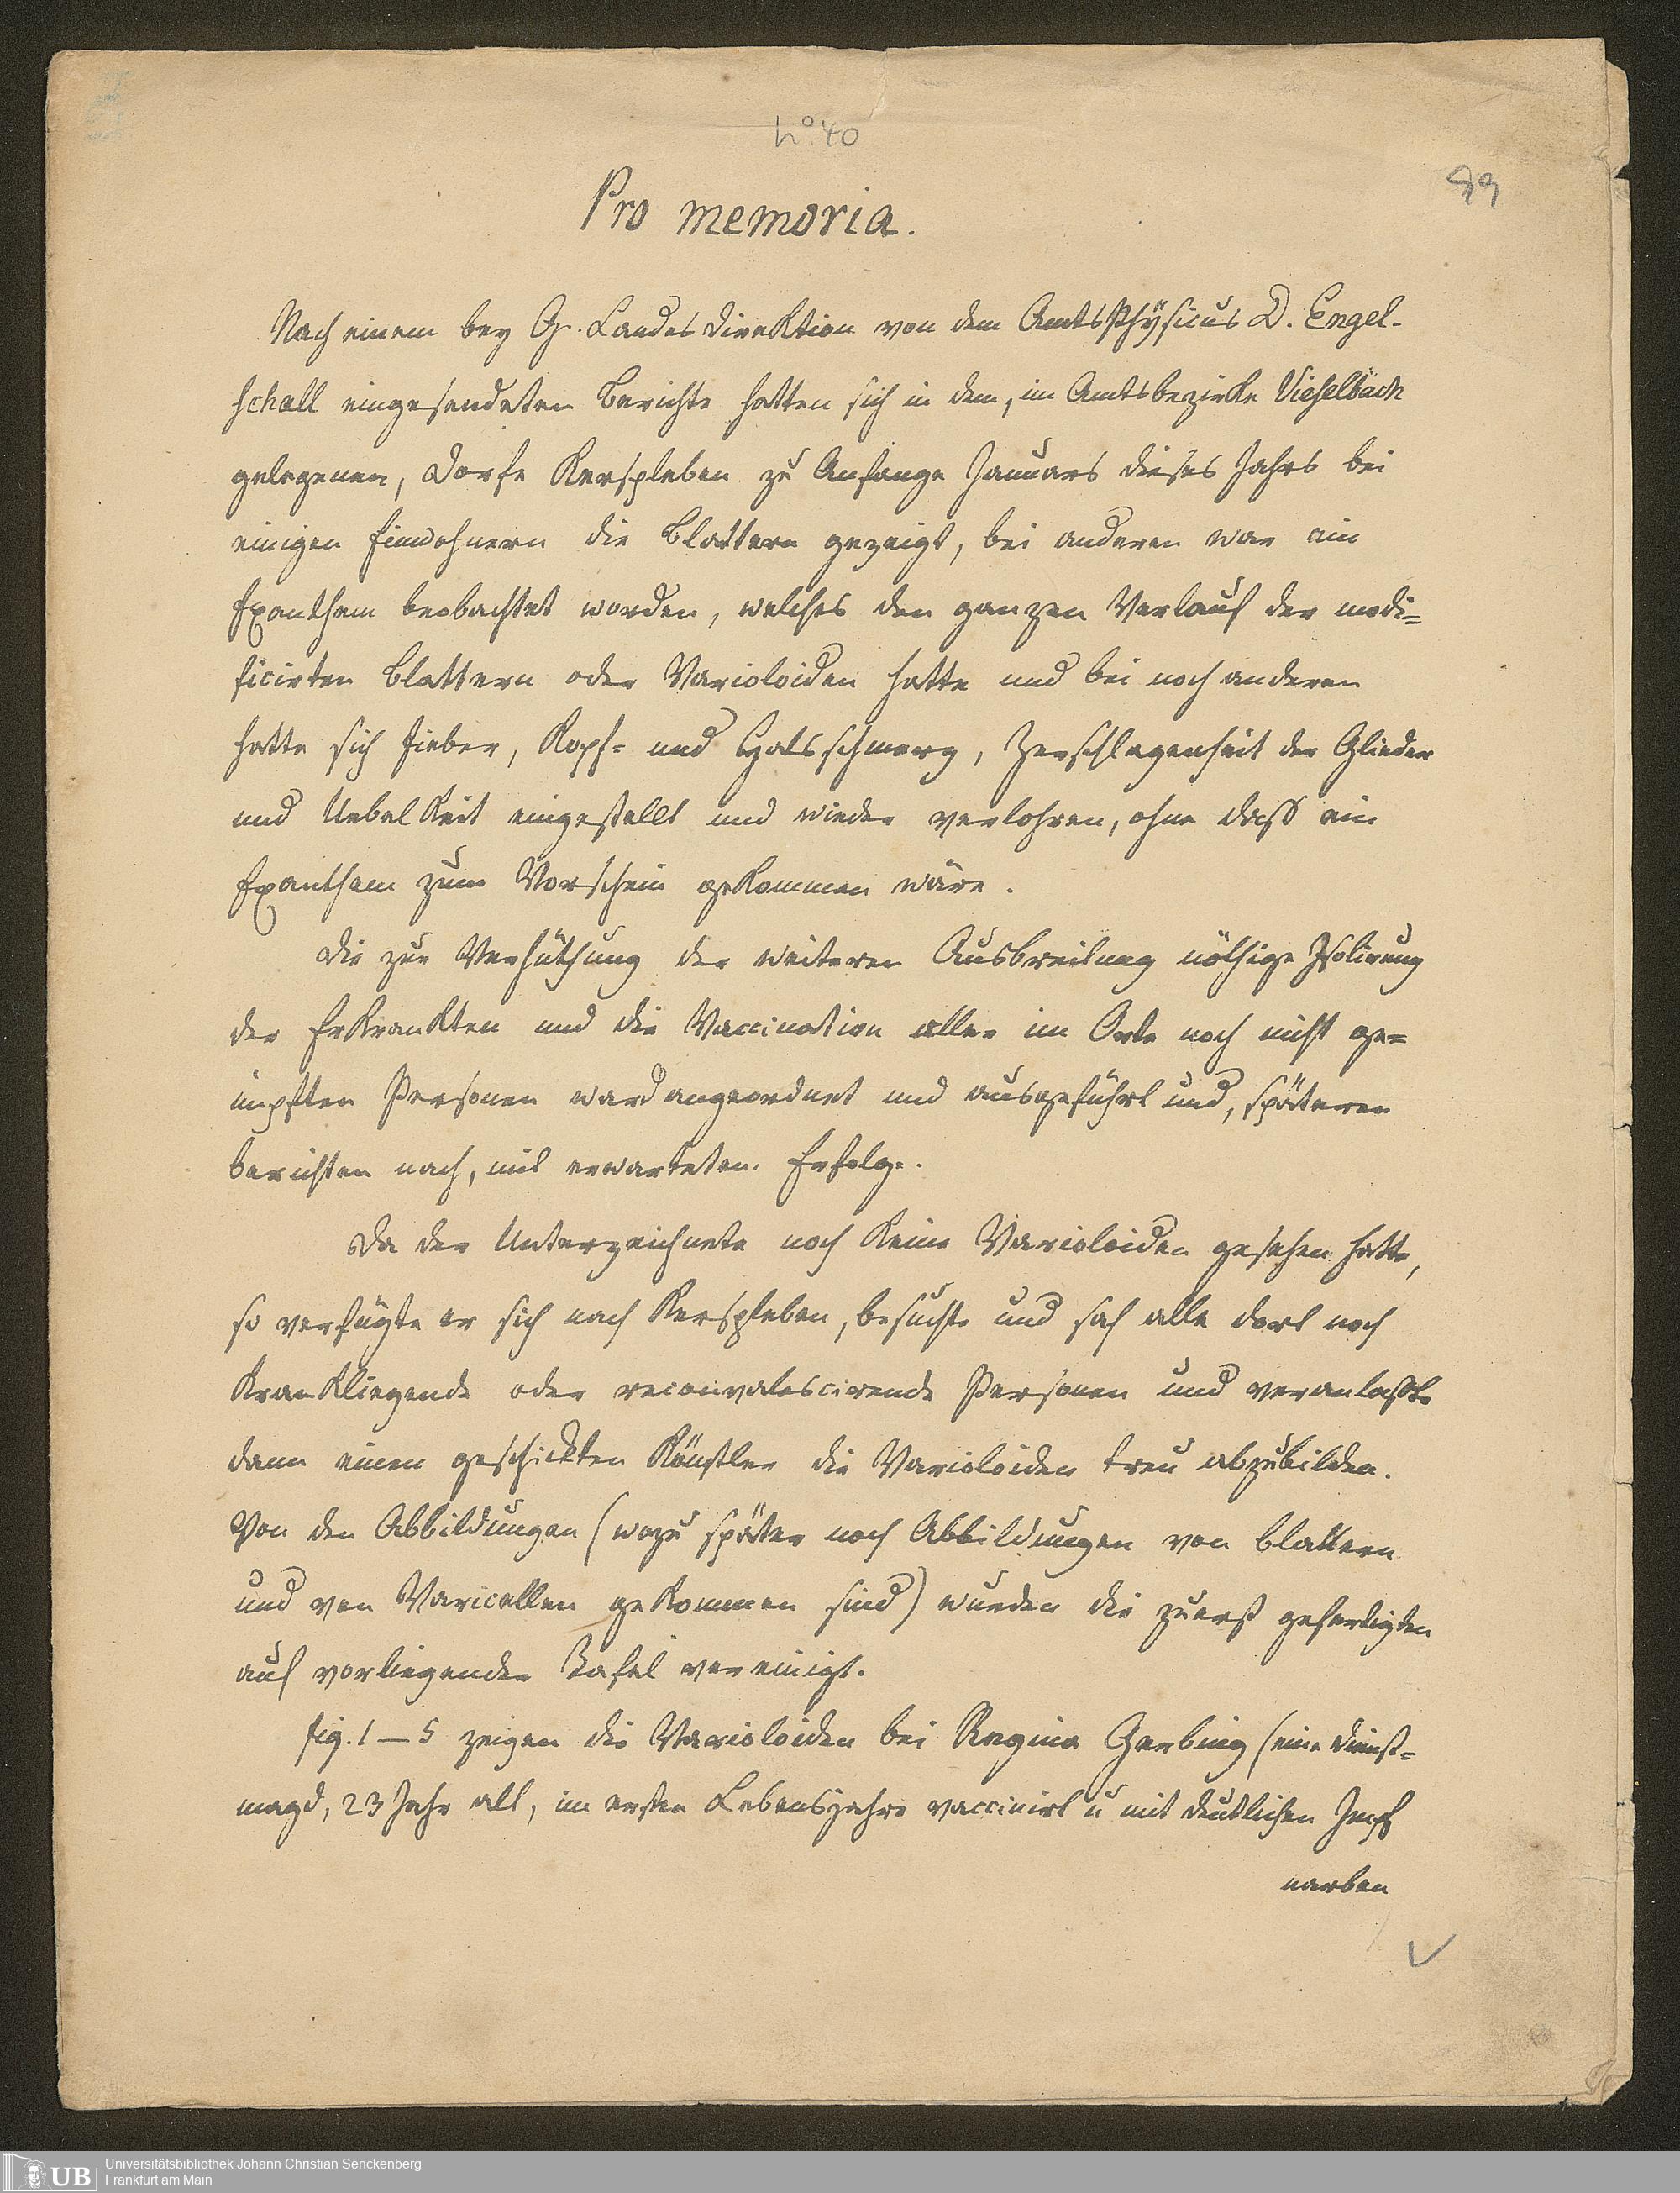 No 40
89
Pro memoria.
Nach einem bey G. Landesdirektion von dem AmtsPhÿsicus D. Engel-
schall eingesendeten Berichte hatten sich in dem, im Amtsbezirke Vieselbach
gelegenen, Dorfe Kerspleben zu Anfange Januars dieses Jahrs bei
einigen Einwohnern die Blattern gezeigt, bei anderen war ein
Exanthem beobachtet worden, welches den ganzen Verlauf der modi=
ficirten Blattern oder Varioloiden hatte und bei noch anderen
hatte sich Fieber, Kopf= und Halsschmerz, Zerschlagenheit der Glieder
und Uebelkeit eingestellt und wieder verlohren, ohne daß ein
Exanthem zum Vorschein gekommen wäre.
Die zur Verhüthung der weiteren Ausbreitung nöthige Isolirung
der Erkrankten und die Vaccination aller im Orte noch nicht ge=
impften Personen ward angeordnet und ausgeführt und, späteren
Berichten nach, mit erwarteten Erfolge.
Da der Unterzeichnete noch keine Varioloiden gesehen hatte,
so verfügte er sich nach Kerspleben, besuchte und sah alle dort noch
krankliegende oder reconvalescirende Personen und veranlaßte
dann einen geschickten Künstler die Varioloiden treu abzubilden.
Von den Abbildungen (wozu später noch Abbildungen von Blattern
und von Varicellen gekommen sind) wurden die zuerst gefertigten
auf vorliegender Tafel vereinigt.
Fig. 1 — 5 zeigen die Varioloiden bei Regina Gerbing (eine Dienst=
magd, 23 Jahr alt, im ersten Lebensjahre vaccinirt u mit deutlichen Impf
narben
UB
Universitätsbibliothek Johann Christian Senckenberg
Frankfurt am Main